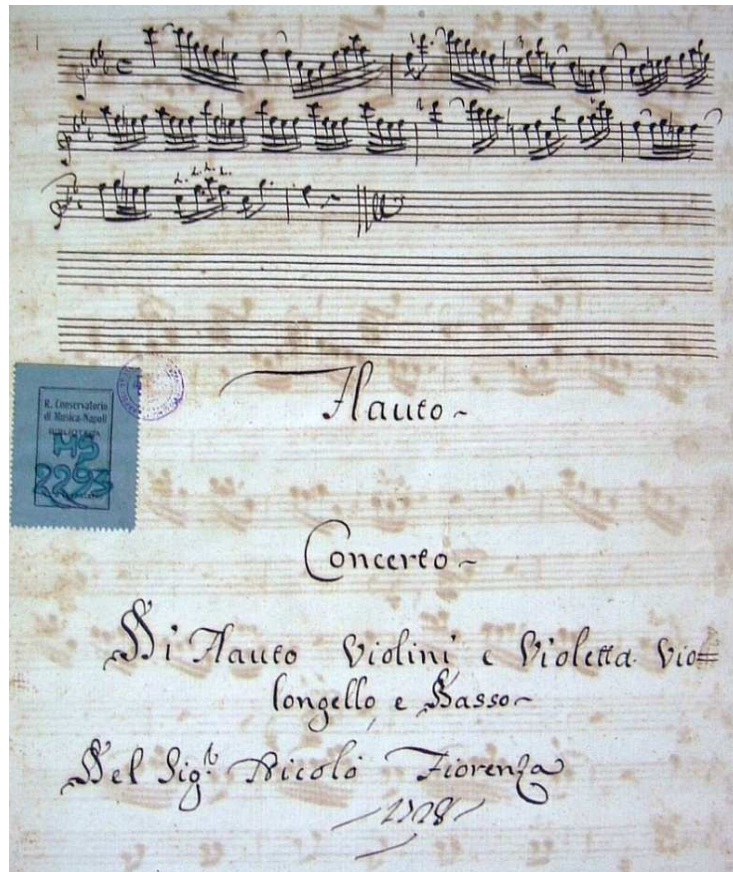 Flauto
R. Conservatorio
di Musica-Napoli
MS
2293
Concerto
Di Flauto Violini e Violetta Vio=
longello e Basso
Del Sigr. Nicolò Fiorenza
1728